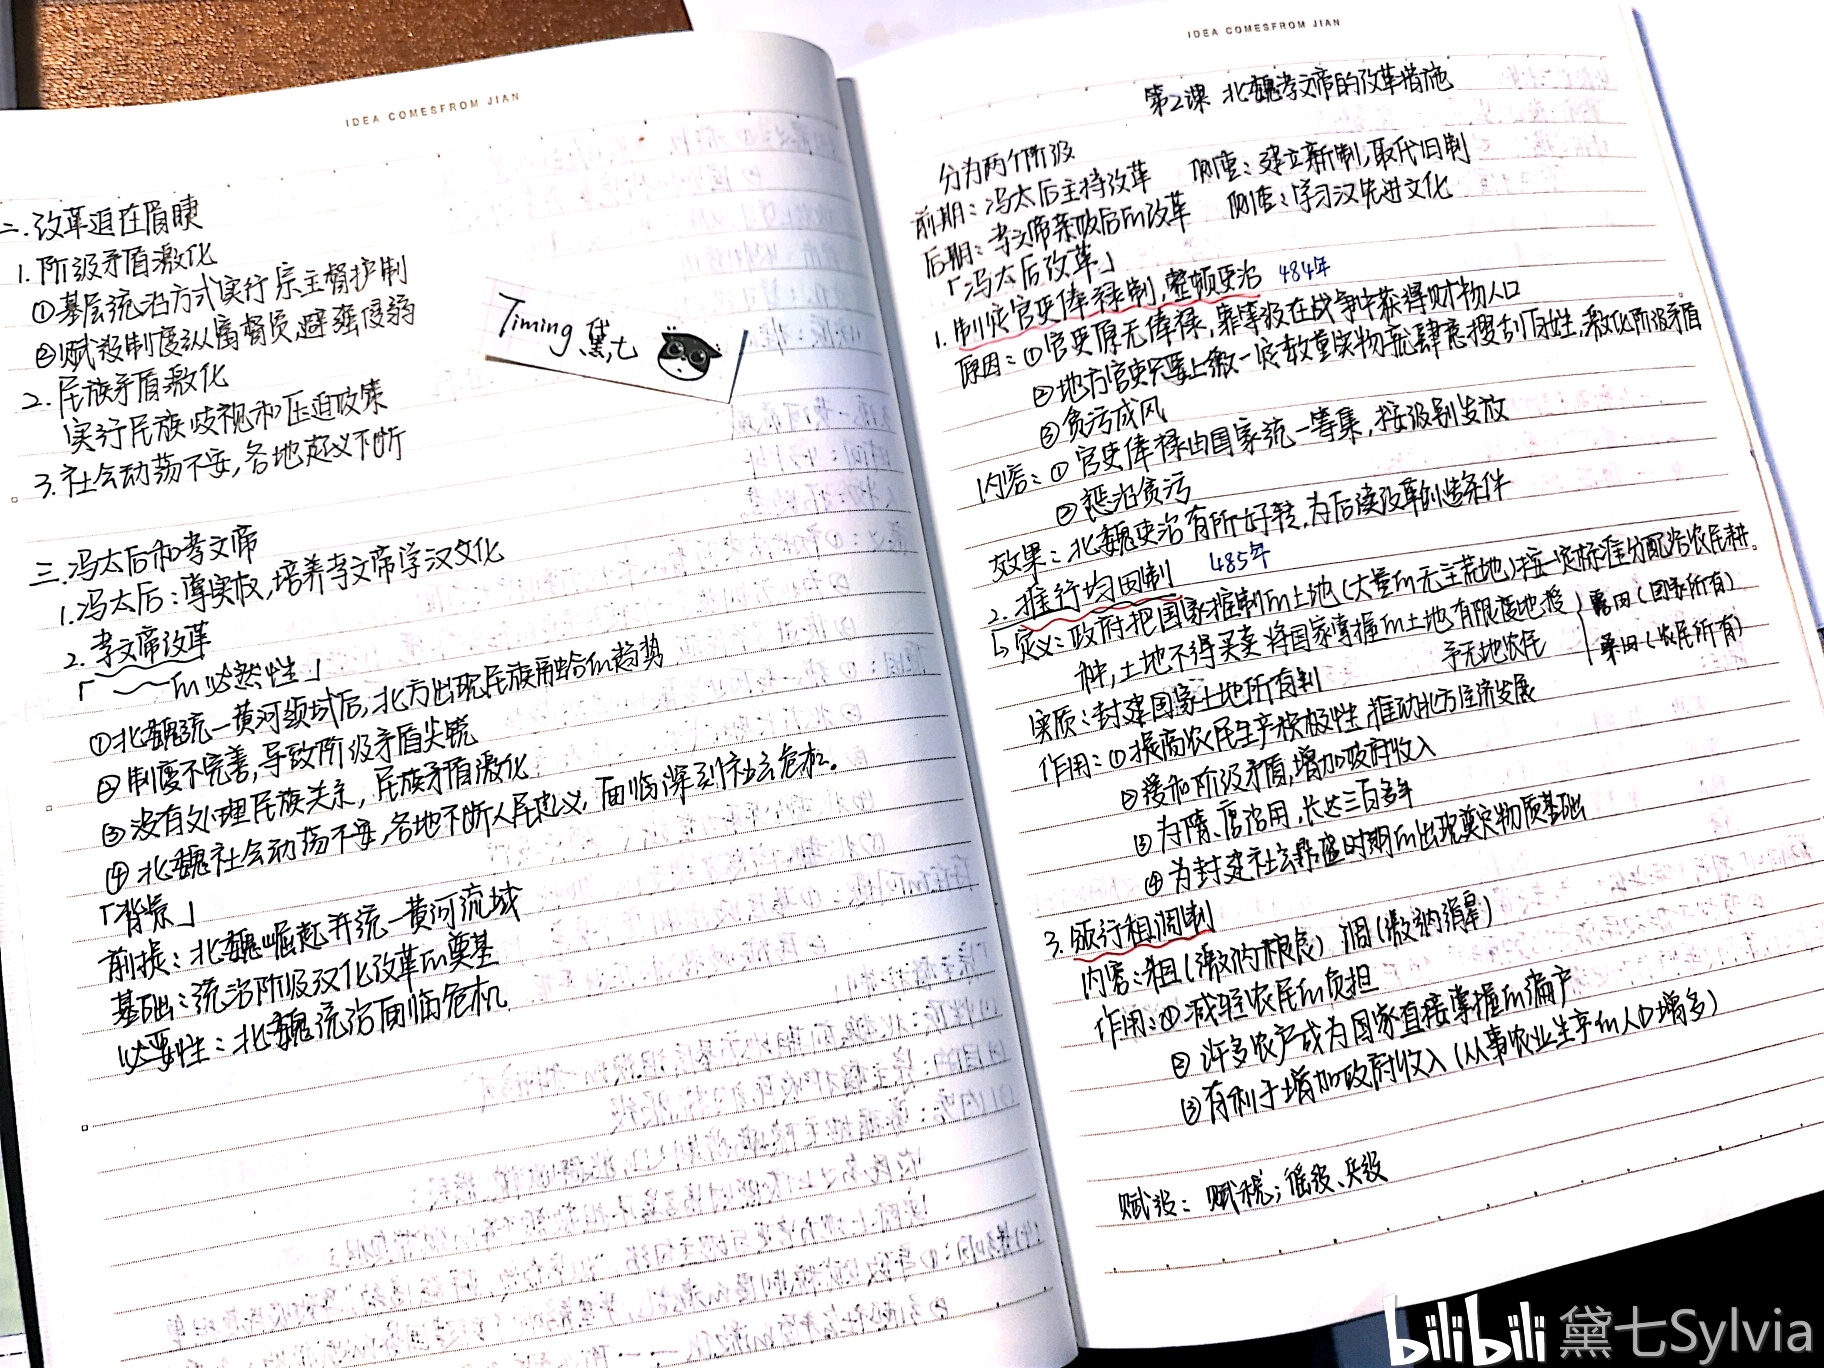 IDEA COMESFROM JIAN
二.改革迫在眉睫
1.阶级矛盾激化
①基层统治方式实行宗主督护制
②赋役制度纵富督贫,避强侵弱
2.民族矛盾激化
实行民族歧视和压迫政策
3.社会动荡不安,各地起义不断
Timing 黛七
三.冯太后和孝文帝
1.冯太后:掌实权,培养孝文帝学汉文化
2.孝文帝改革
「——的必然性」
①北魏统一黄河领域后,北方出现民族融合的趋势
②制度不完善,导致阶级矛盾尖锐
③没有处理民族关系,民族矛盾激化
④北魏社会动荡不安,各地不断人民起义,面临深刻社会危机。
「背景」
前提:北魏崛起并统一黄河流域
基础:统治阶级汉化改革的奠基
必要性:北魏统治面临危机
IDEA COMESFROM JIAN
第2课 北魏孝文帝的改革措施
分为两个阶级
前期:冯太后主持改革 侧重:建立新制,取代旧制
后期:孝文帝亲政后的改革 侧重:学习汉先进文化
「冯太后改革」
1.制定官吏俸禄制,整顿吏治 484年
原因:①官吏原无俸禄,靠等级在战争中获得财物人口
②地方官吏只要上缴一定数量实物就肆意搜刮百姓,激化阶级矛盾
③贪污成风
内容:①官吏俸禄由国家统一筹集,按级别发放
②惩治贪污
效果:北魏吏治有所好转,为后续改革创造条件
2.推行均田制 485年
↳定义:政府把国家控制的土地(大量的无主荒地)按一定标准分配给农民耕
种,土地不得买卖 将国家掌握的土地有限度地授 露田(国家所有)
予无地农民 桑田(农民所有)
实质:封建国家土地所有制
作用:①提高农民生产积极性,推动北方经济发展
②缓和阶级矛盾,增加政府收入
③为隋、唐沿用,长达三百多年
④为封建社会鼎盛时期的出现奠定物质基础
3.颁行租调制
内容:租(缴纳粮食) 调(缴纳绢帛)
作用:①减轻农民的负担
②许多农户成为国家直接掌握的编户
③有利于增加政府收入(从事农业生产的人口增多)
赋役:赋税;徭役、兵役
bilibili 黛七Sylvia